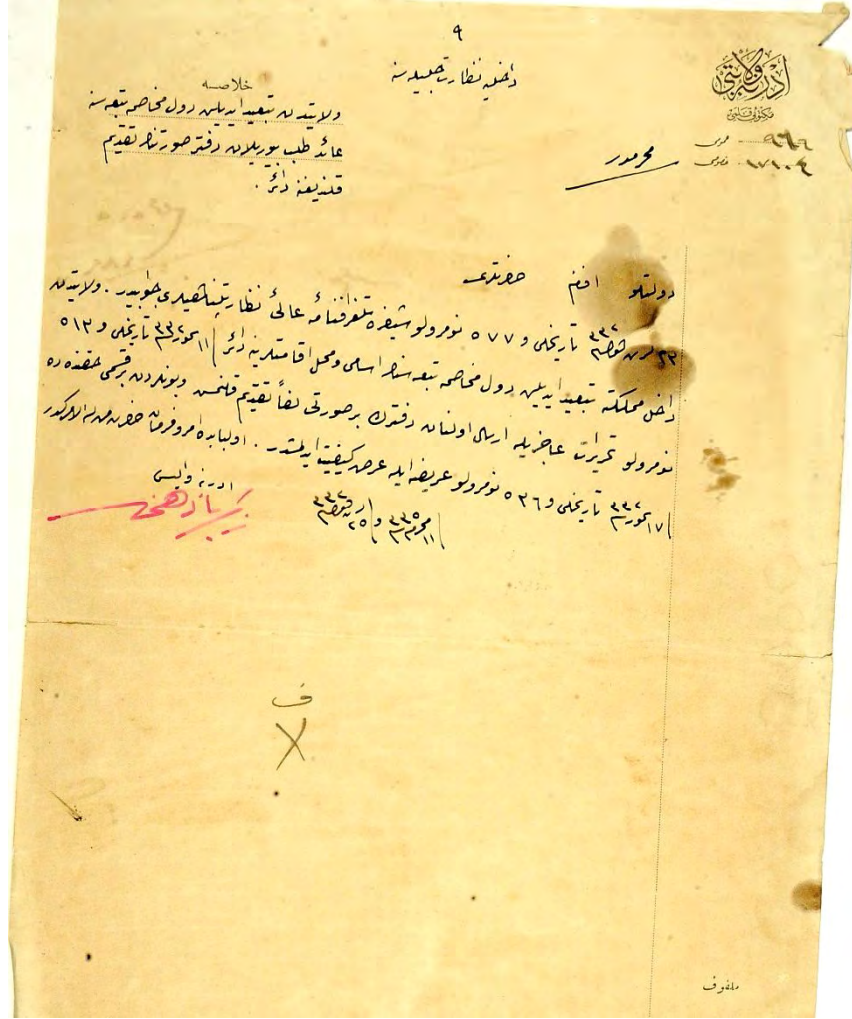 ٩
داخليه نظارت جليله سنه
ادرنه ولايتى
مكتوبى قلمى
عمومى ٩٦٦
خصوصى ١٧١٠٤
محرمدر
خلاصه
ولايتدن تبعيد ايديلن دول مخاصمه تبعه سنه
عائد طلب بوريلان دفتر صورتنك تقديم
قلنديغنه دائر .
دولتلو افندم حضرتلرى
٢٣ تشرين ٣٣٢ تاريخلى و ٥٧٧ نومرولو شيفره تلغرافنامه عالئ نظارتپناهيلرى جوابيدر . ولايتدن
داخل مملكته تبعيد ايديلن دول مخاصمه تبعه سنك اسامى ومحل اقامتلرينه دائر ١١ تموز ٣٣٢ تاريخلى و ٥١٣
نومرولو تحريرات عاجزيله ارسال اولنان دفترك بر صورتى لفاً تقديم قلنمش وبونلردن بر قسمى حقنده ده
١٧ تموز ٣٣٢ تاريخلى و ٥٣٦ نومرولو عريضه ايله عرض كيفيت ايدلمشدر . اولبابده امر وفرمان حضرت من له الامركدر
١١ محرم ٣٣٥ و ٢٥ ٣٣٢
ادرنه واليسى
ف
ملفوف